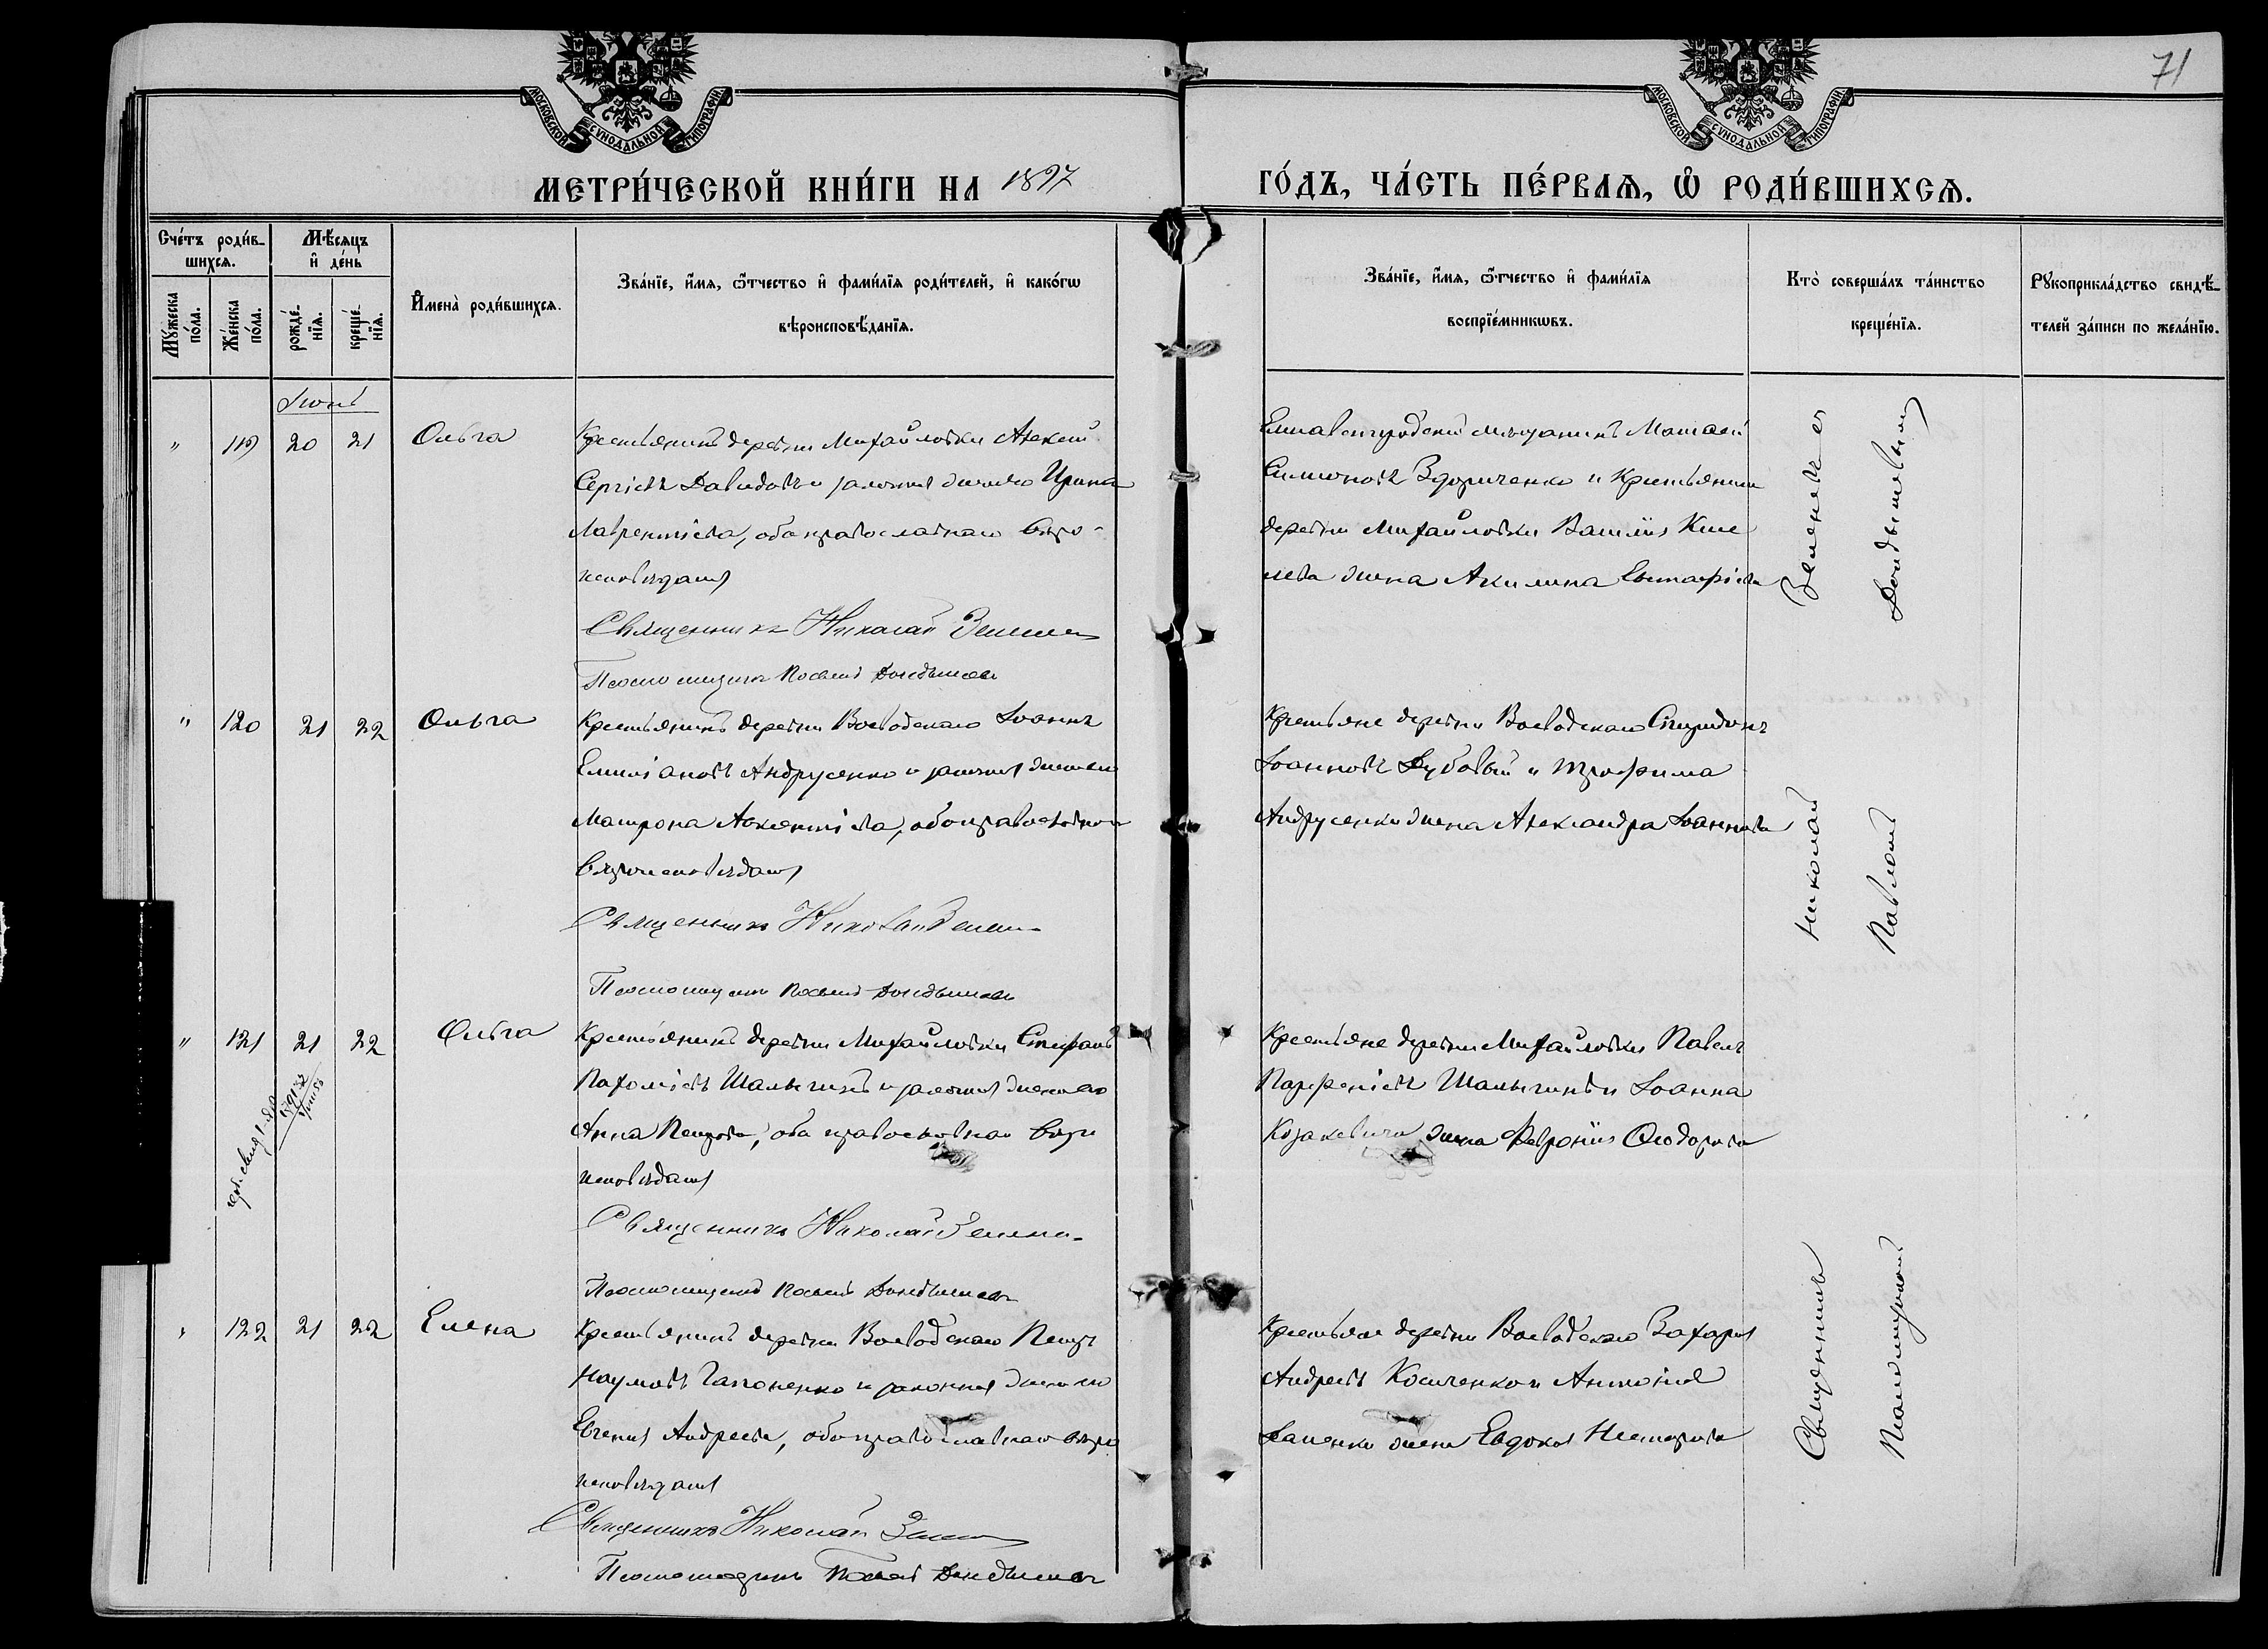 71
МОСКОВСКОЙ СУНОДАЛЬНОЙ ТИПОГРАФІИ
МОСКОВСКОЙ СУНОДАЛЬНОЙ ТИПОГРАФІИ
МЕТРИ́ЧЕСКОЙ КНИ́ГИ НА 1897 ГО́ДЪ, ЧА́СТЬ ПЕ́РВАѦ, Ѡ РОДИ́ВШИХСѦ.
Сче́тъ роди́в-
шихсѧ.
Му́жеска
по́ла.
Же́нска
по́ла.
Мѣ́сѧцъ
и҆ де́нь
рожде́-
нїѧ.
креще́-
нїѧ.
И҆мена̀ роди́вшихсѧ.
Зва́нїе, и҆́мѧ, ѻ҆́тчество и҆ фами́лїѧ роди́телей, и҆ како́гѡ
вѣроисповѣ́данїѧ.
Зва́нїе, и҆́мѧ, ѻ҆́тчество и҆ фами́лїѧ
воспрїе́мникѡвъ.
Кто̀ соверша́лъ та́инство
креще́нїѧ.
Рꙋкоприкла́дство свидѣ́-
телей за́писи по жела́нїю.
Іюнь
" 119 20 21 Ольга
Крестьянинъ деревни Михайловки Алексей
Сергіевъ Давидовъ и законная жена его Ирина
Лаврентіева, оба православнаго веро-
исповѣданія
Священникъ Николай
Псаломщикъ Павелъ Дондышевъ
Елисаветградский мещанинъ
Симеоновъ Здориченко и Крестьянина
деревни Михайловки Василія Кисе
лева жена Акилина Евстафіева
" 120 21 22 Ольга
Крестьянинъ деревни Воеводскаго Іоаннъ
Емиліановъ Андрусенко и законная жена его
Матрона Авксентіева, оба православнаго
вѣроисповѣданія
Священникъ Николай
Псаломщикъ Павелъ Дондышевъ
Крестьяне деревни Воеводскаго Спиридонъ
Іоанновъ Дубовый и Трофима
Андрусенко жена Александра Іоаннова
" 121 21 22 Ольга
Крестьянинъ деревни Михайловки Стефанъ
Пахоміевъ Шалыгинъ и законная жена его
Анна Петрова, оба православнаго веро
исповѣданія
Священникъ Николай
Псаломщикъ Павелъ Дондышевъ
Крестьяне деревни Михайловки Павелъ
Парфеніевъ Шалыгинъ и Іоанна
Козакевича жена Февронія Ѳеодорова
" 122 21 22 Елена
Крестьянинъ деревни Воеводскаго Петръ
Наумовъ Гапоненко и законная жена его
Евгенія Андреева, оба православнаго веро
исповѣданія
Священникъ Николай
Псаломщикъ Павелъ Дондышевъ
Крестьяне деревни Воеводскаго Захарія
Андреевъ Косиченко и Антонія
жена Евдокія Несторова
Священникъ Николай Зеленкевич
Псаломщикъ Павелъ Дондышевъ